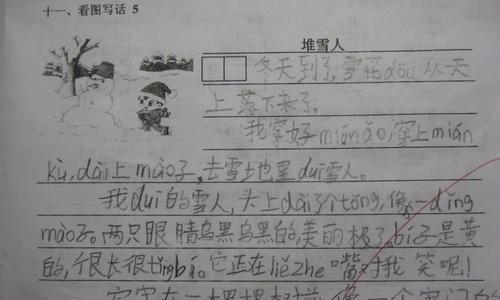 十一、看图写话 5
堆雪人
冬天到了,雪花dōu从天
上落下来了。
我穿好mián ǎo,穿上mián
kù,dài上mào子,去雪土地里duī雪人。
我duī的雪人,头上dài了个tǒng,像一dǐng
mào子。两只眼睛乌黑乌黑的美丽极了。bí子是黄
的,很长很 它正在liě zhe嘴对我笑呢!